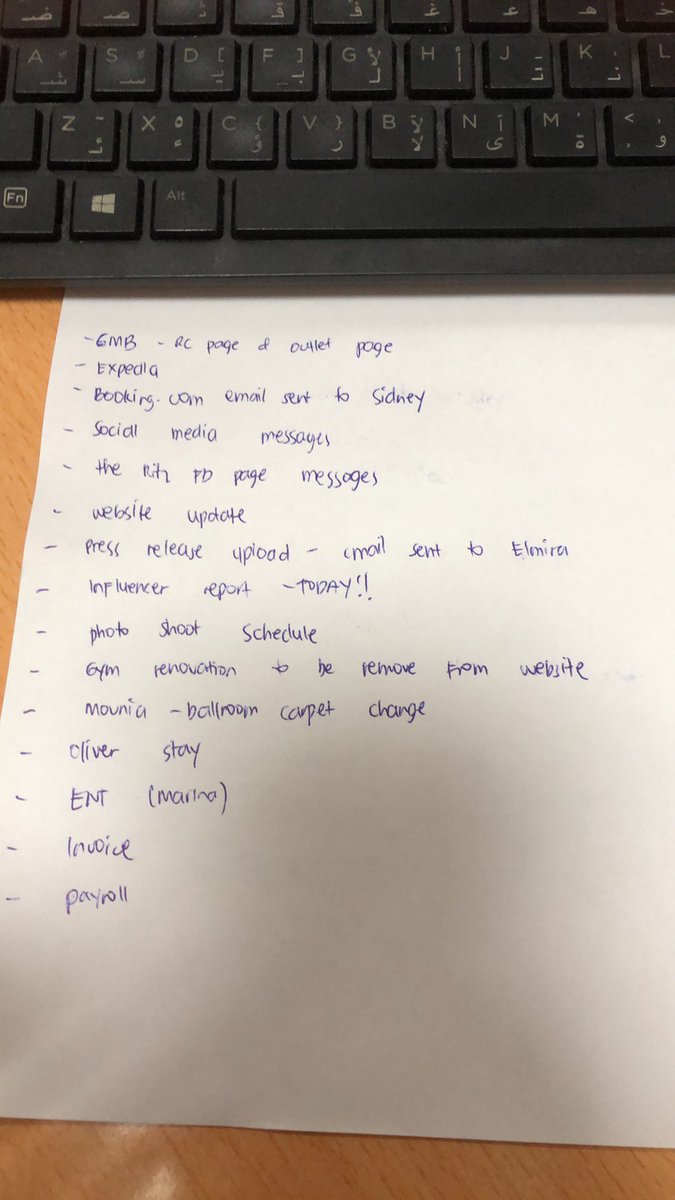 ض ص ق ف غ ع ه خ
A ش S س D [ ي F ] ب G لأ ل H أ ا J ـ ت K ، ن L
Z ~ ئ X ْ ء C { ؤ V } ر B لآ لا N آ ى M ' ة < , و
Fn Alt
- GMB - RC page & outlet page
- Expedia
- Booking.com email sent to Sidney
- Social media messages
- the Ritz FB page messages
- website update
- press release upload - email sent to Elmira
- Influencer report - TODAY!!
- photo shoot schedule
- Gym renovation to be remove from website
- Mounia - ballroom carpet change
- Oliver stay
- ENT (Marina)
- Invoice
- payroll